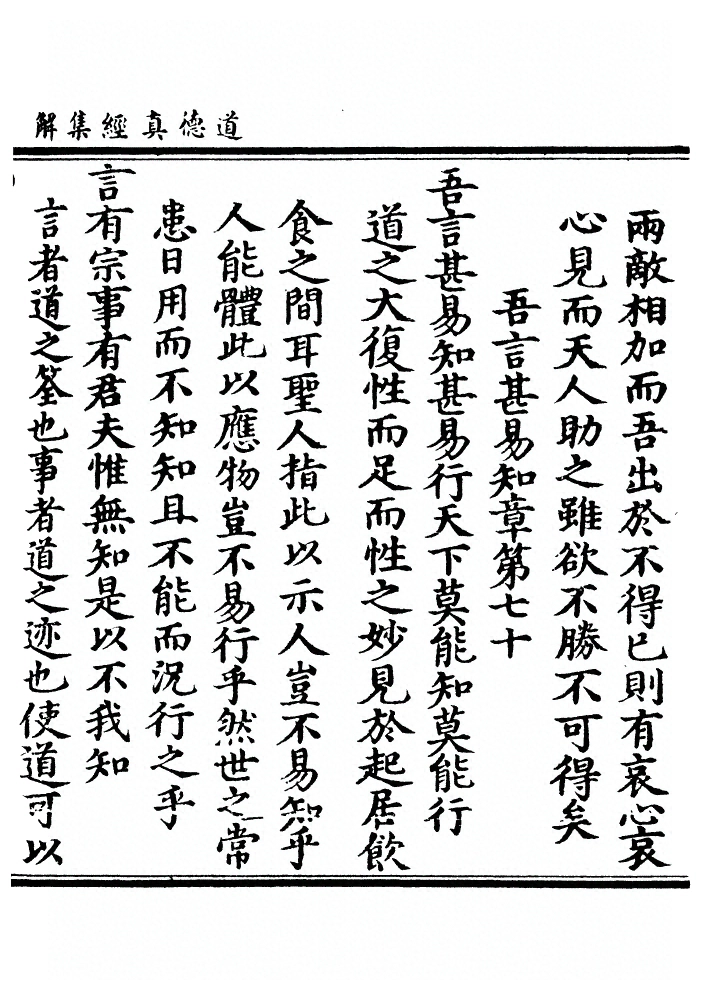 道德真經集解
兩敵相加而吾出於不得已則有哀心哀
心見而天人助之雖欲不勝不可得矣
吾言甚易知章第七十
吾言甚易知甚易行天下莫能知莫能行
道之大復性而足而性之妙見於起居飲
食之間耳聖人指此以示人豈不易知乎
人能體此以應物豈不易行乎然世之常
患日用而不知知且不能而況行之乎
言有宗事有君夫惟無知是以不我知
言者道之筌也事者道之迹也使道可以